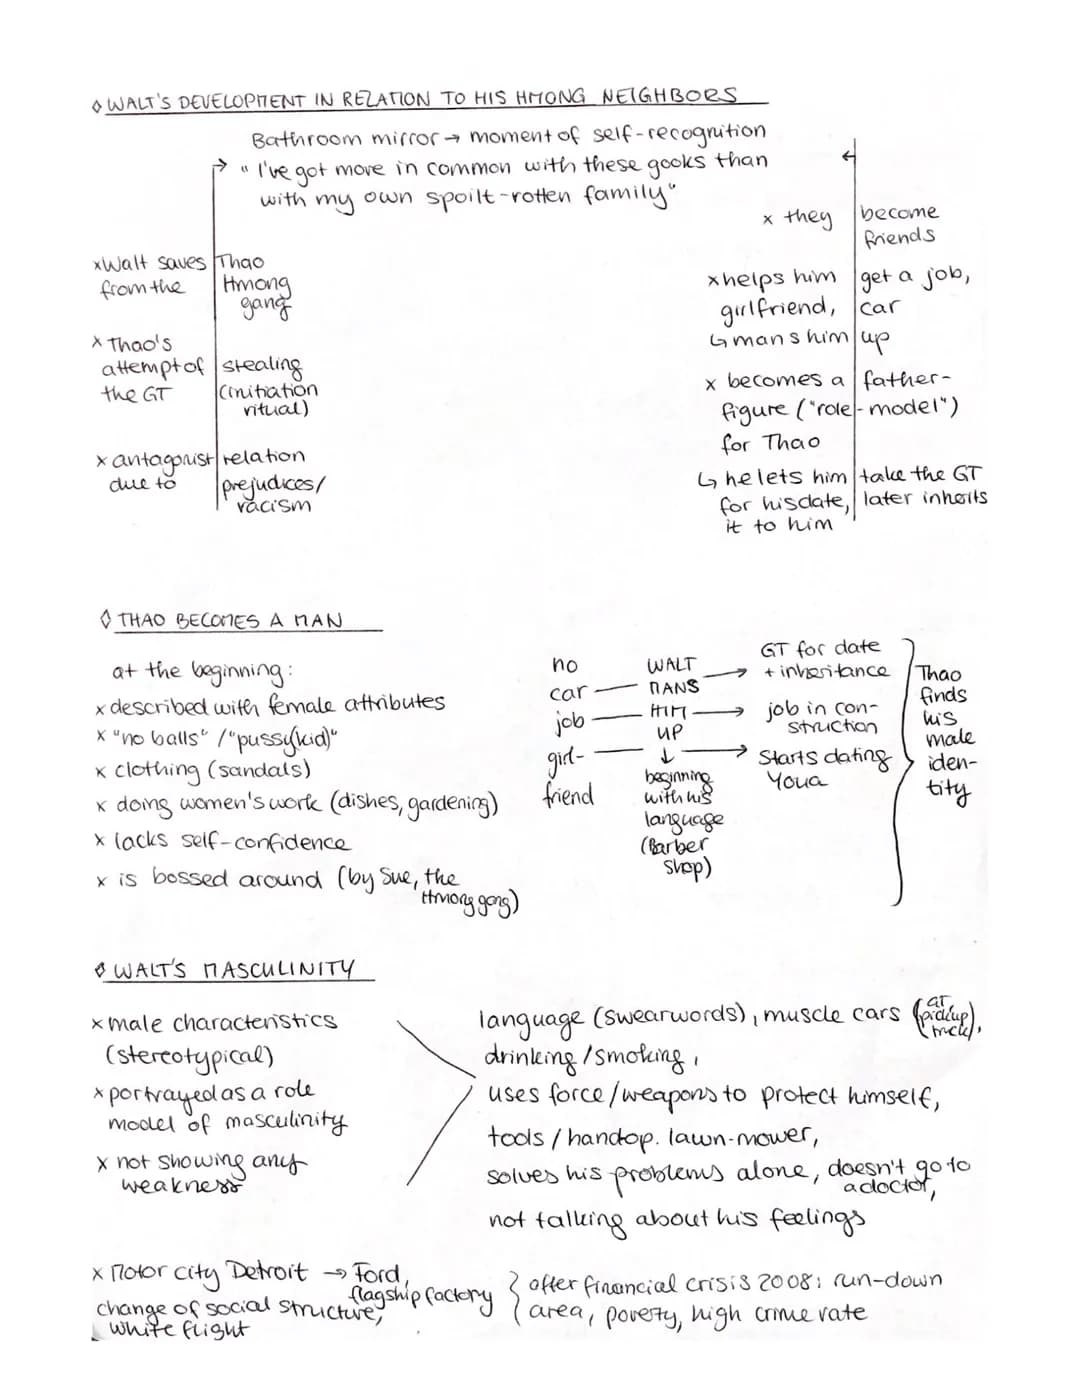 ◊ WALT'S DEVELOPMENT IN RELATION TO HIS HMONG NEIGHBORS
Bathroom mirror → moment of self-recognition
" I've got more in common with these gooks than
with my own spoilt-rotten family"
x Walt saves Thao
from the Hmong
gang
x Thao's
attempt of stealing
the GT (initiation
ritual)
x antagonist relation
due to prejudices/
racism
x they become
friends
x helps him get a job,
girlfriend, car
↳ mans him up
x becomes a father-
figure ("role-model")
for Thao
↳ he lets him take the GT
for his date, later inherits
it to him
◊ THAO BECOMES A MAN
at the beginning:
x described with female attributes
x "no balls" / "pussy(kid)"
x clothing (sandals)
x doing women's work (dishes, gardening)
x lacks self-confidence
x is bossed around (by Sue, the
Hmong gang)
no
car
job
girl-
friend
WALT
MANS
HIM
UP
↓
beginning
with his
language
(Barber
shop)
→ GT for date
+ inheritance
→ job in con-
struction
→ Starts dating
Youa
Thao
finds
his
male
iden-
tity
◊ WALT'S MASCULINITY
x male characteristics
(stereotypical)
x portrayed as a role
model of masculinity
x not showing any
weakness
language (swearwords), muscle cars (GT, pickup truck),
drinking/smoking,
uses force/weapons to protect himself,
tools / handop. lawn-mower,
solves his problems alone, doesn't go to
a doctor,
not talking about his feelings
x Motor city Detroit → Ford,
flagship factory
change of social structure,
white flight
after financial crisis 2008: run-down
area, poverty, high crime rate